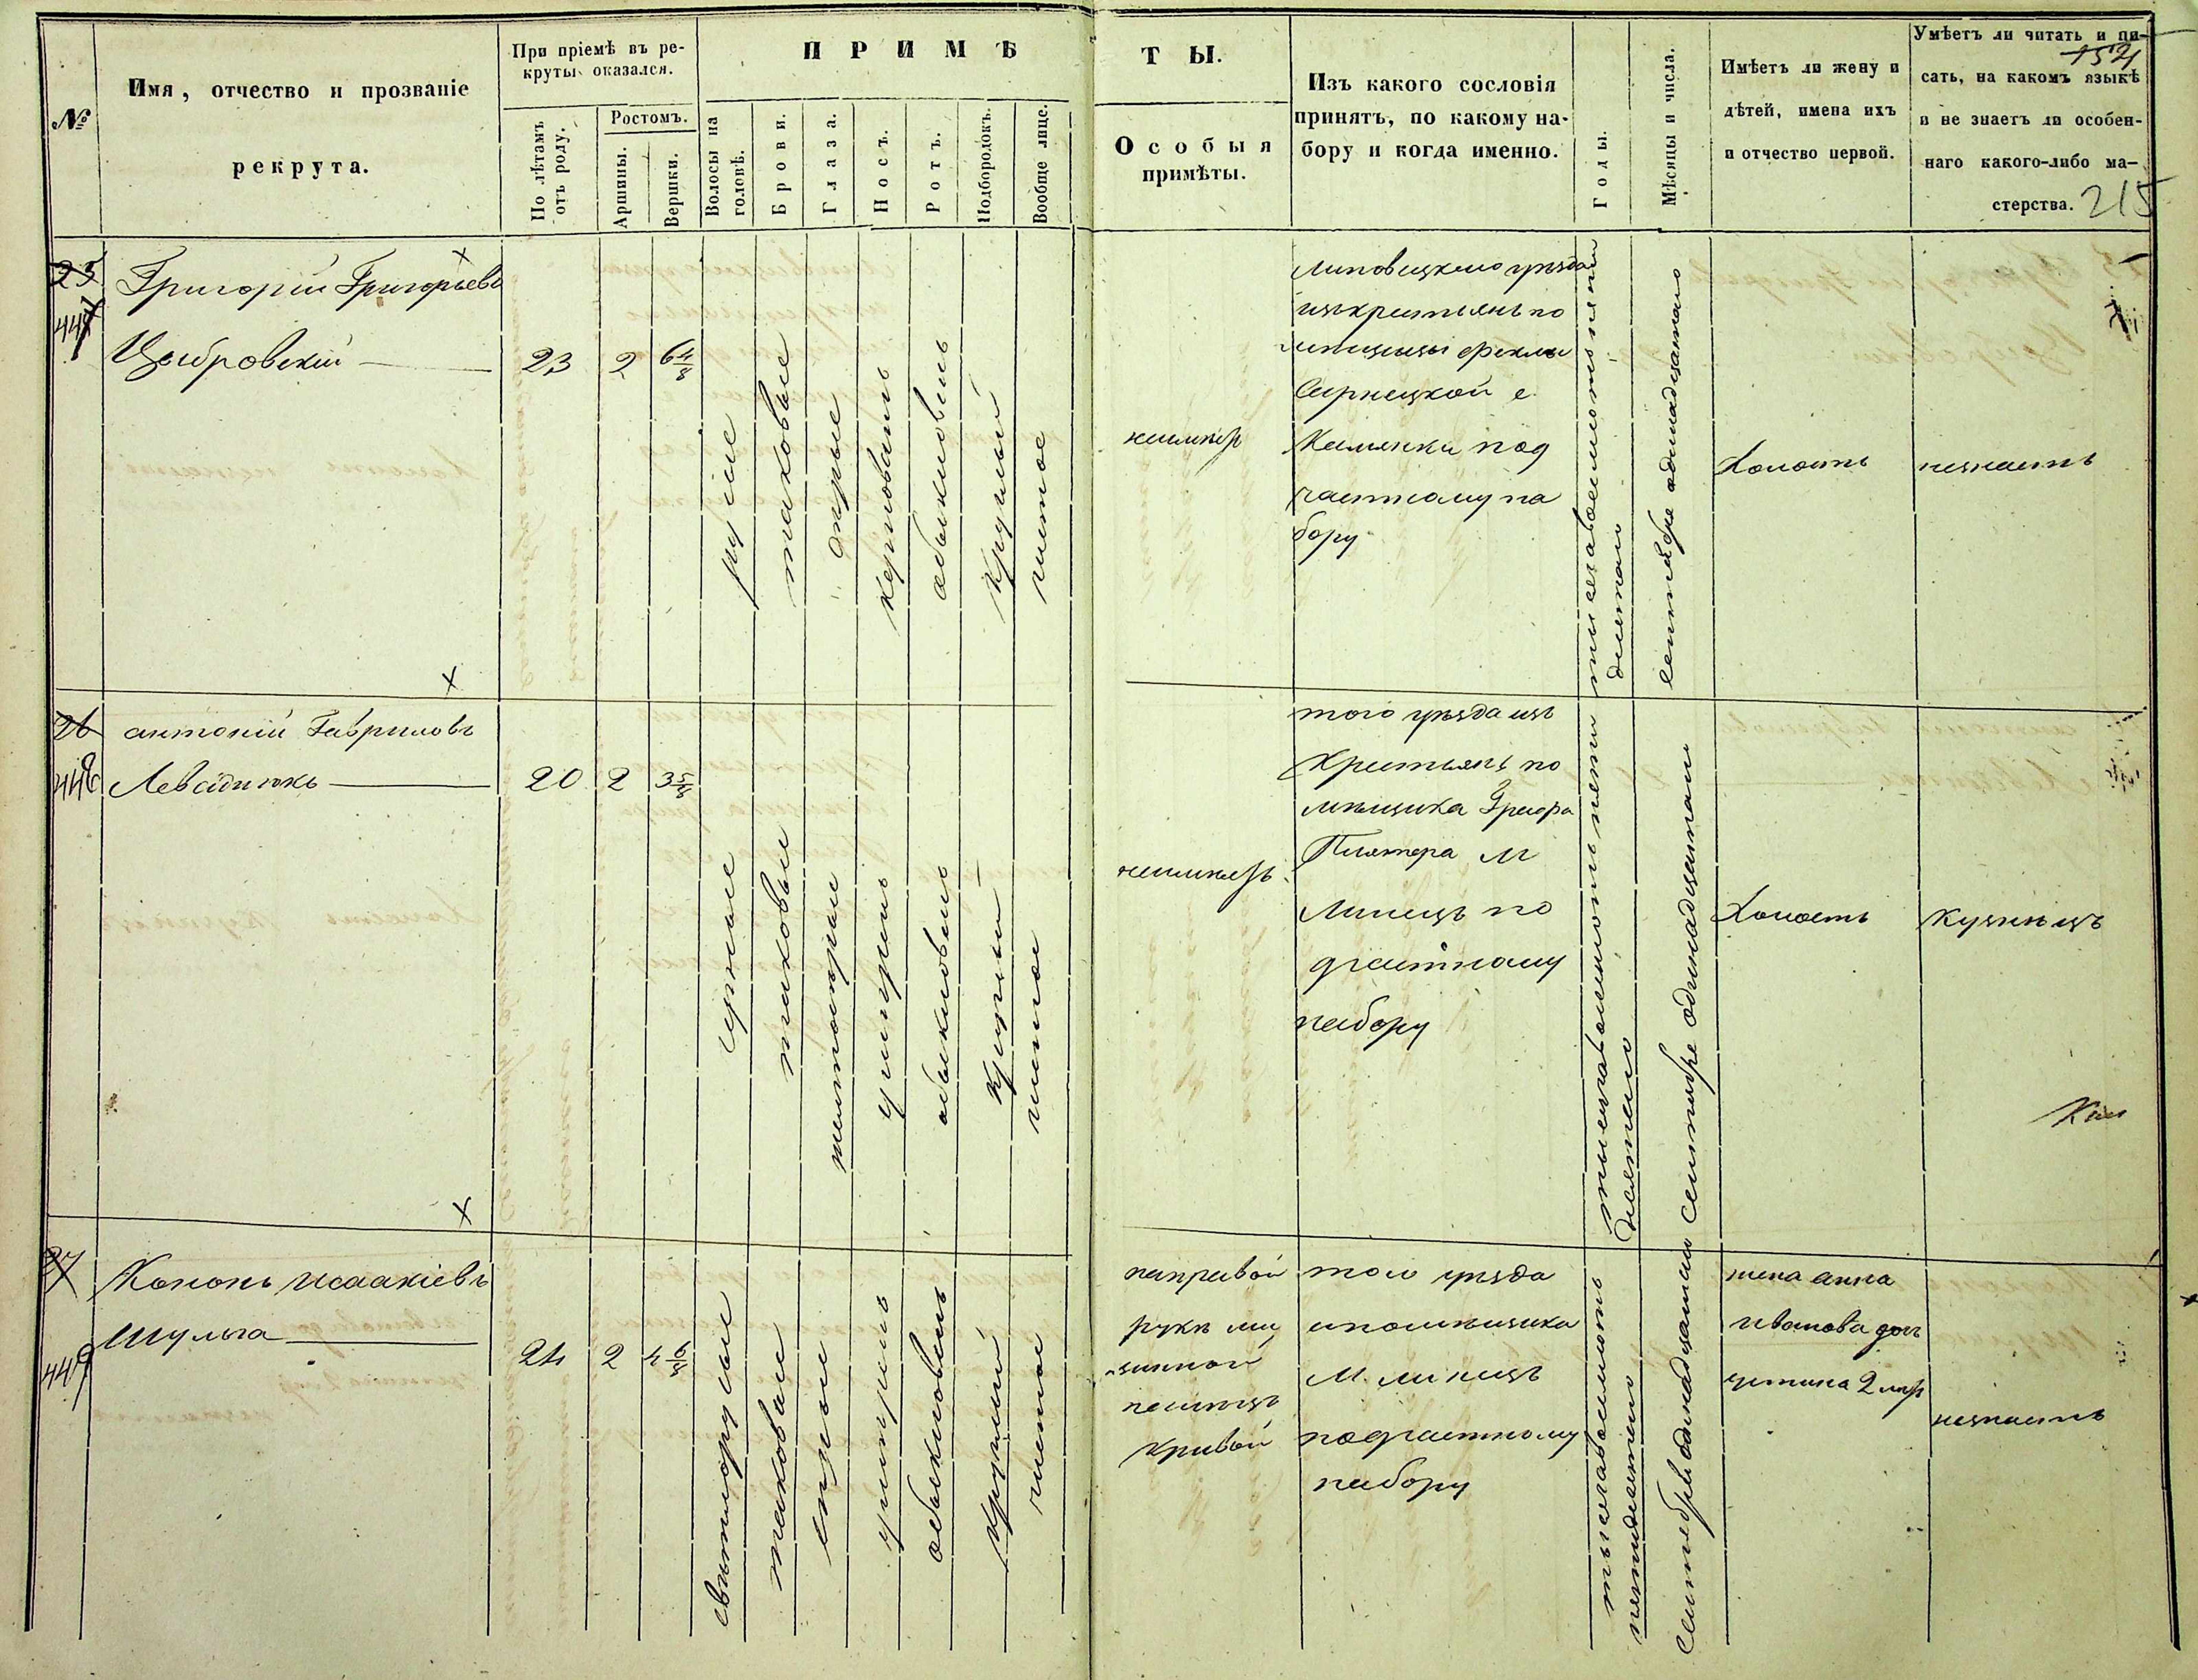 №
Имя, отчество и прозваніе
рекрута.
При пріемѣ въ ре-
круты оказался.
По лѣтамъ
отъ роду.
Ростомъ.
Аршины.
Вершки.
ПРИМѢ
Волосы на
головѣ.
Брови.
Глаза.
Носъ.
Ротъ.
Подбородокъ.
Вообще лице.
ТЫ.
Особыя
примѣты.
Изъ какого сословія
принятъ, по какому на-
бору и когда именно.
Годы.
Мѣсяцы и числа.
Имѣетъ ли жену и
дѣтей, имена ихъ
и отчество первой.
Умѣетъ ли читать и пи-
сать, на какомъ языкѣ
и не знаетъ ли особен-
наго какого-либо ма-
стерства.
215
25
447
Григорій Григорьевъ
Цыбровскій
23
2
6 4/8
русые
таковые
сѣрые
обыкновенъ
круглый
чистое
неимѣетъ
Липовецкаго уѣзда
изъ крестьянъ по
мѣщицы Феклы
Сарнецкой с.
Каменки под
частному на
бору
тысяча восемсотъ пять
десятаго
сентября одинадцатаго
Холостъ
незнаетъ
26
448
антоній Гавриловъ
Левсидюкъ
20
2
3 5/8
черные
таковые
умѣренъ
обыкновенъ
круглый
чистое
неимѣетъ
того уѣзда изъ
крестьянъ по
мѣщика Графа
Плятера М
Линецъ по
дчастному
набору
тысяча восемсотъ пять
десятаго
Сентября одинадцатаго
Холостъ
кузнецъ
27
449
Кононъ исаакіевъ
Шульга
24
2
4 6/8
свѣтлорусые
таковые
сѣрые
умѣренъ
обыкновенъ
круглый
чистое
направой
рукѣ ми
зинной
палецъ
кривой
того уѣзда
ипомѣщика
М. линецъ
подчастному
набору
тысяча восемсотъ
пятидесятаго
Сентября одинадцатаго
жена анна
иванова доч
незнаетъ